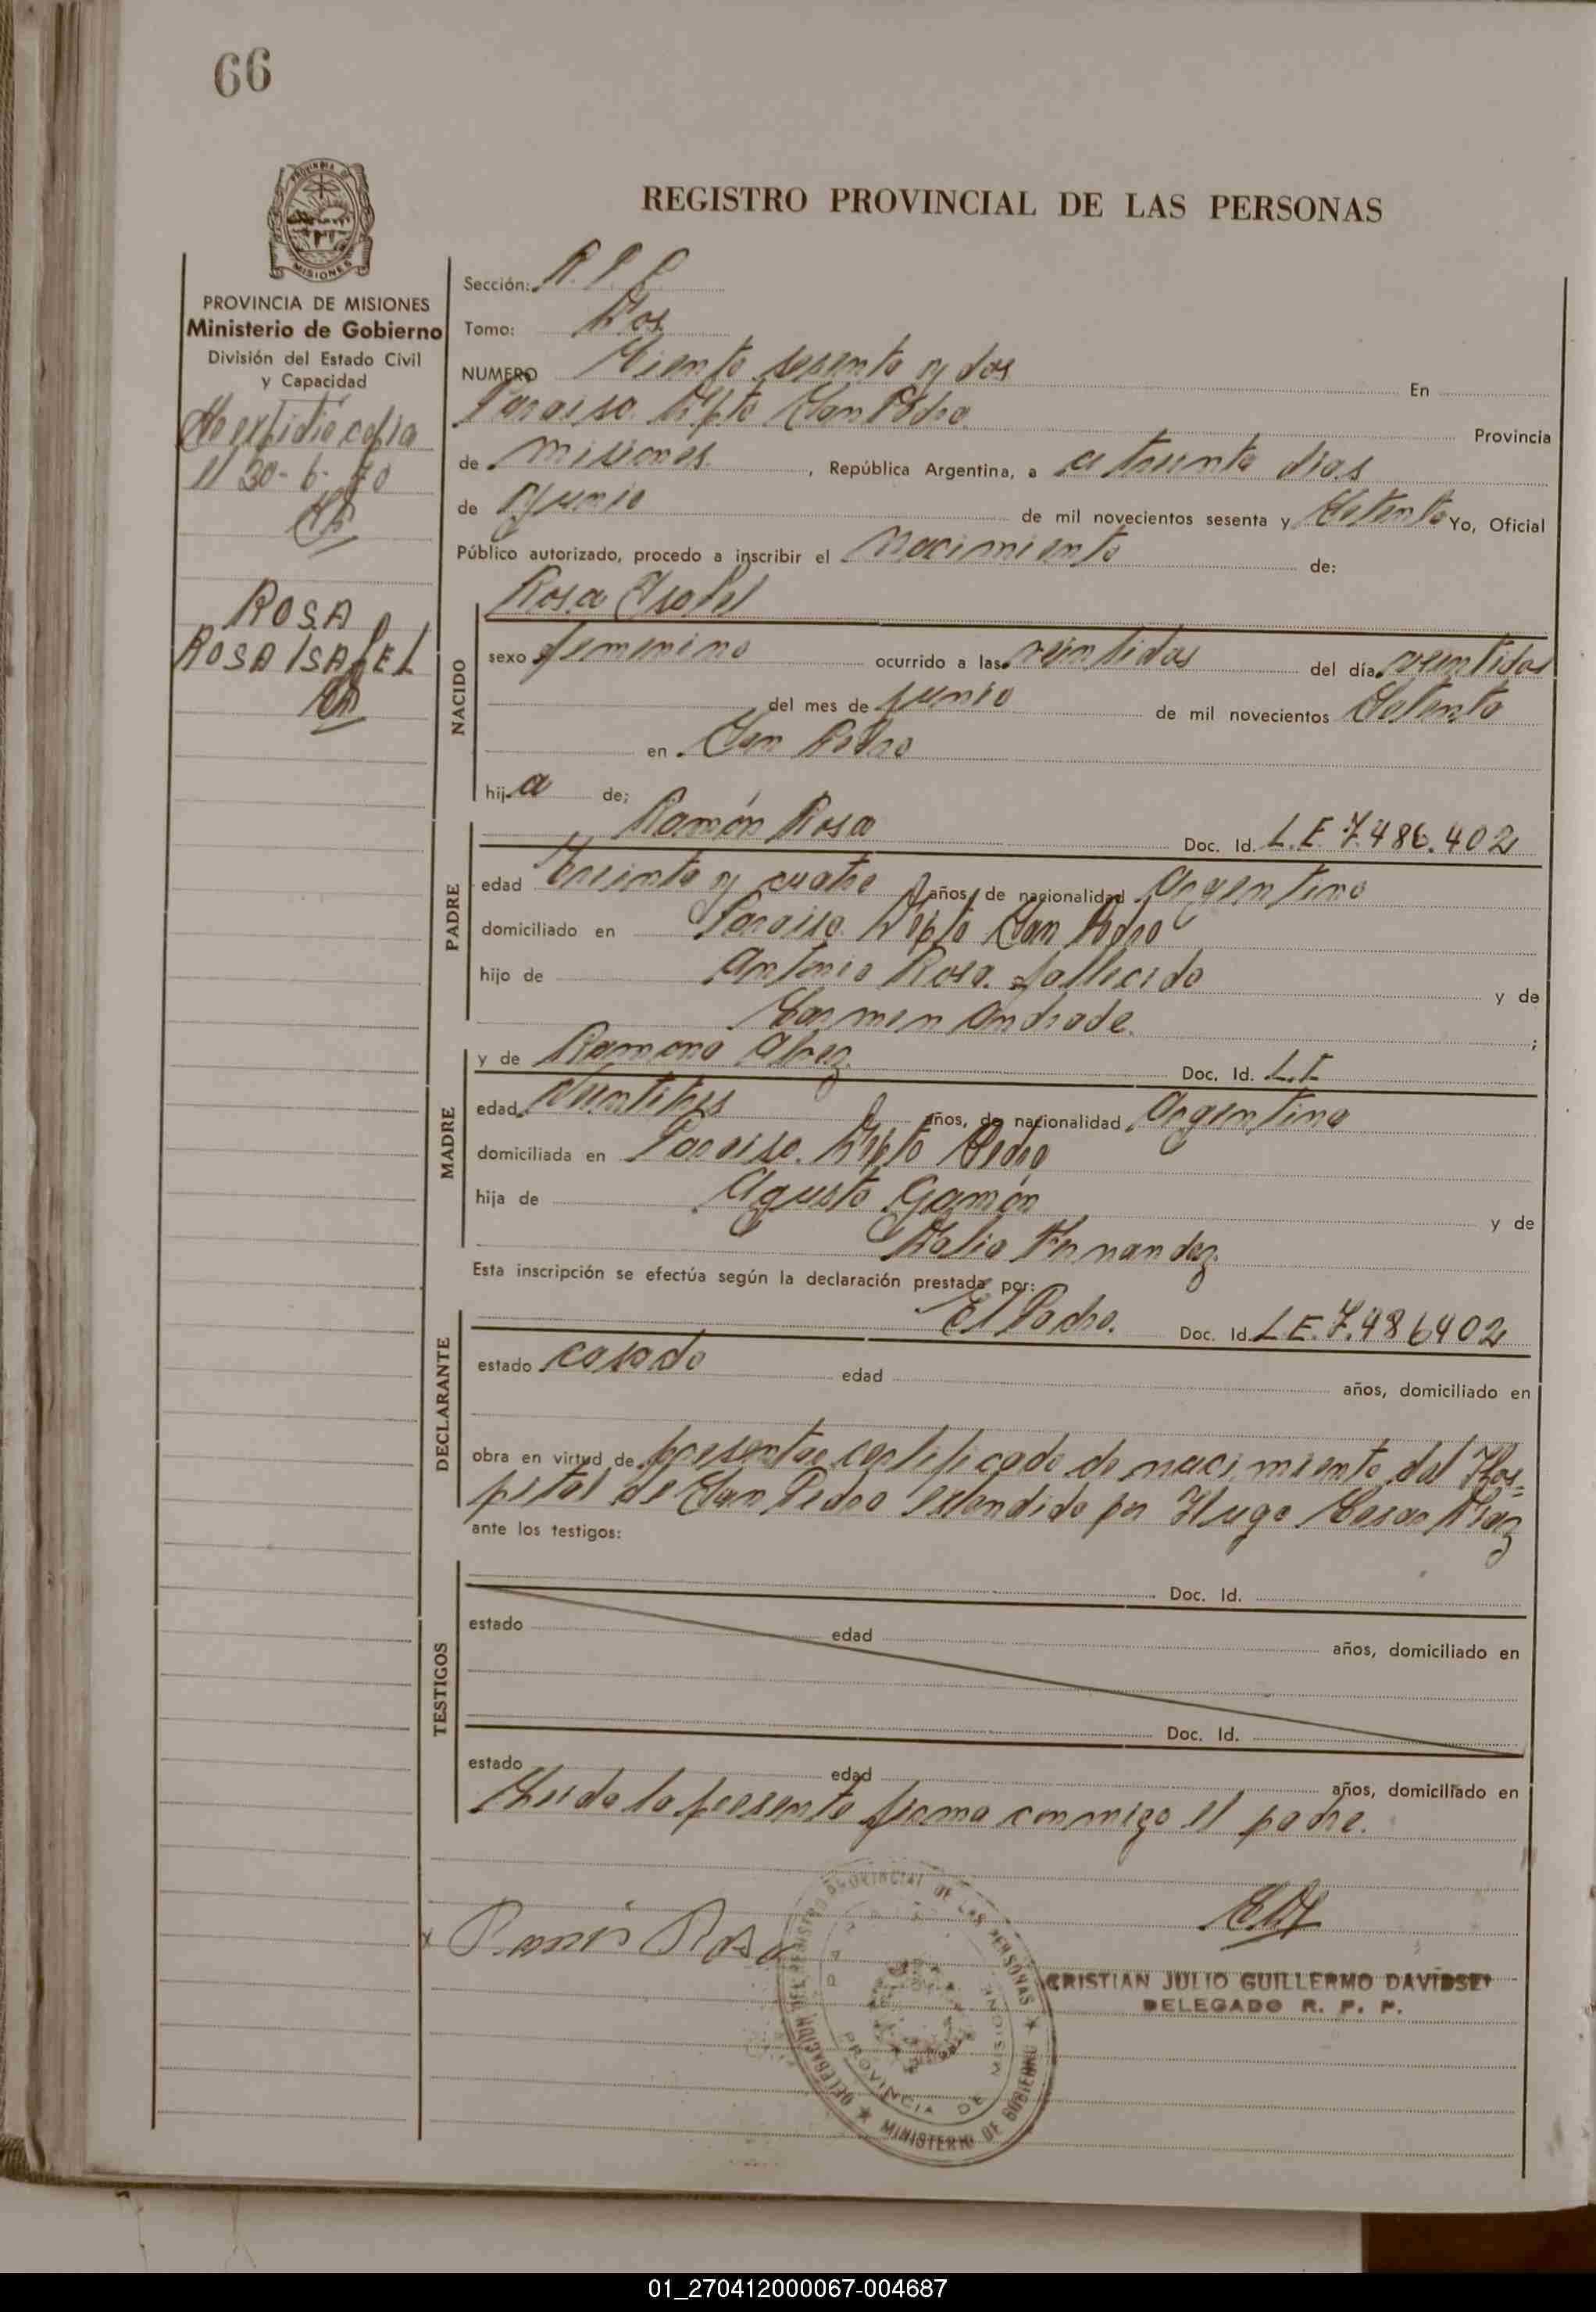 66
REGISTRO PROVINCIAL DE LAS PERSONAS
PROVINCIA DE MISIONES
Ministerio de Gobierno
División del Estado Civil
y Capacidad
Se expidió copia
el 30-6-70
ROSA
ROSA ISABEL
Sección: R. P. P.
Tomo: Dos
NUMERO Ciento sesenta y dos En
Paraiso Dpto San Pedro Provincia
de Misiones, República Argentina, a a treinta dias
de Junio de mil novecientos sesenta y Setenta Yo, Oficial
Público autorizado, procedo a inscribir el Nacimiento de:
Rosa Isabel
NACIDO
sexo femenino ocurrido a las veintidos del día veintidos
del mes de junio de mil novecientos Setenta
en San Pedro
hija de;
Ramón Rosa Doc. Id. L.E. 7.486.402
PADRE
edad Treinta y cuatro años, de nacionalidad Argentino
domiciliado en Paraiso Depto San Pedro
hijo de Antonio Rosa. fallecido y de
Carmen Andrade. ;
MADRE
y de Ramona Doc. Id.
edad Veintitres años, de nacionalidad Argentina
domiciliada en Paraiso. Depto Pedro
hija de Agusto Gamón y de
Fernandez.
Esta inscripción se efectúa según la declaración prestada por:
El Padre. Doc. Id. L E. 7.486402
DECLARANTE
estado casado edad años, domiciliado en
obra en virtud de presentar certificado de nacimiento del Hos=
pital de San Pedro extendido por Hugo Cesar Diaz
ante los testigos:
Doc. Id.
TESTIGOS
estado edad años, domiciliado en
Doc. Id.
estado edad años, domiciliado en
Leida la presente firma conmigo el padre.
x Ramón Rosa
DELEGACION DEL REGISTRO PROVINCIAL DE LAS PERSONAS
PROVINCIA DE MISIONES
MINISTERIO DE GOBIERNO
CRISTIAN JULIO GUILLERMO DAVIDSEN
DELEGADO R. P. P.
01_270412000067-004687